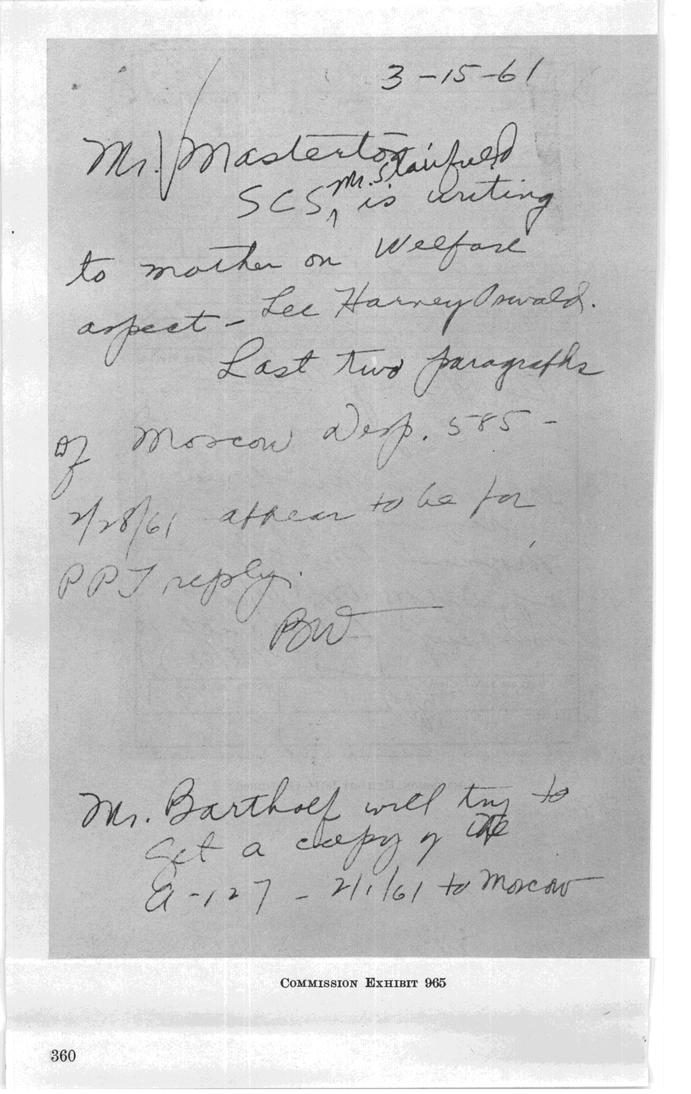 3-15-61
Mr. Masterton
SCS, Mr. Stanfield is writing
to mother on Welfare
aspect - Lee Harvey Oswald.
Last two paragraphs
of Moscow Desp. 585 -
2/28/61 appear to be for
PPT reply.
BW
Mr. Bartholf will try to
get a copy of the
A-127 - 2/1/61 to Moscow
COMMISSION EXHIBIT 965
360